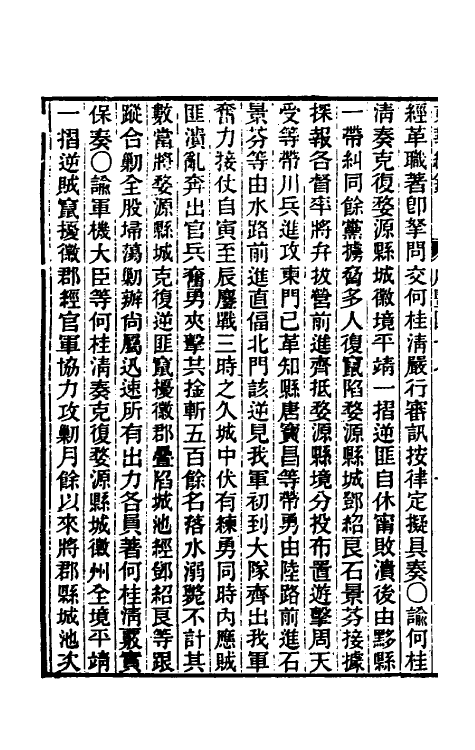 經革職著卽拏問交何桂淸嚴行審訊按律定擬具奏〇諭何桂
淸奏克復婺源縣城徽境平靖一摺逆匪自休甯敗潰後由黟縣
一帶糾同餘黨擄脅多人復竄陷婺源縣城鄧紹良石景芬接據
探報各督率將弁拔營前進齊抵婺源縣境分投布置遊擊周天
受等帶川兵進攻東門已革知縣唐寶昌等帶勇由陸路前進石
景芬等由水路前進直偪北門該逆見我軍初到大隊齊出我軍
奮力接仗自寅至辰鏖戰三時之久城中伏有練勇同時內應賊
匪潰亂奔出官兵奮勇夾擊其捦斬五百餘名落水溺斃不計其
數當將婺源縣城克復逆匪竄擾徽郡疊陷城池經鄧紹良等跟
蹤合勦全股埽蕩勦辦尙屬迅速所有出力各員著何桂淸覈實
保奏〇諭軍機大臣等何桂淸奏克復婺源縣城徽州全境平靖
一摺逆賊竄擾徽郡經官軍協力攻勦月餘以來將郡縣城池次